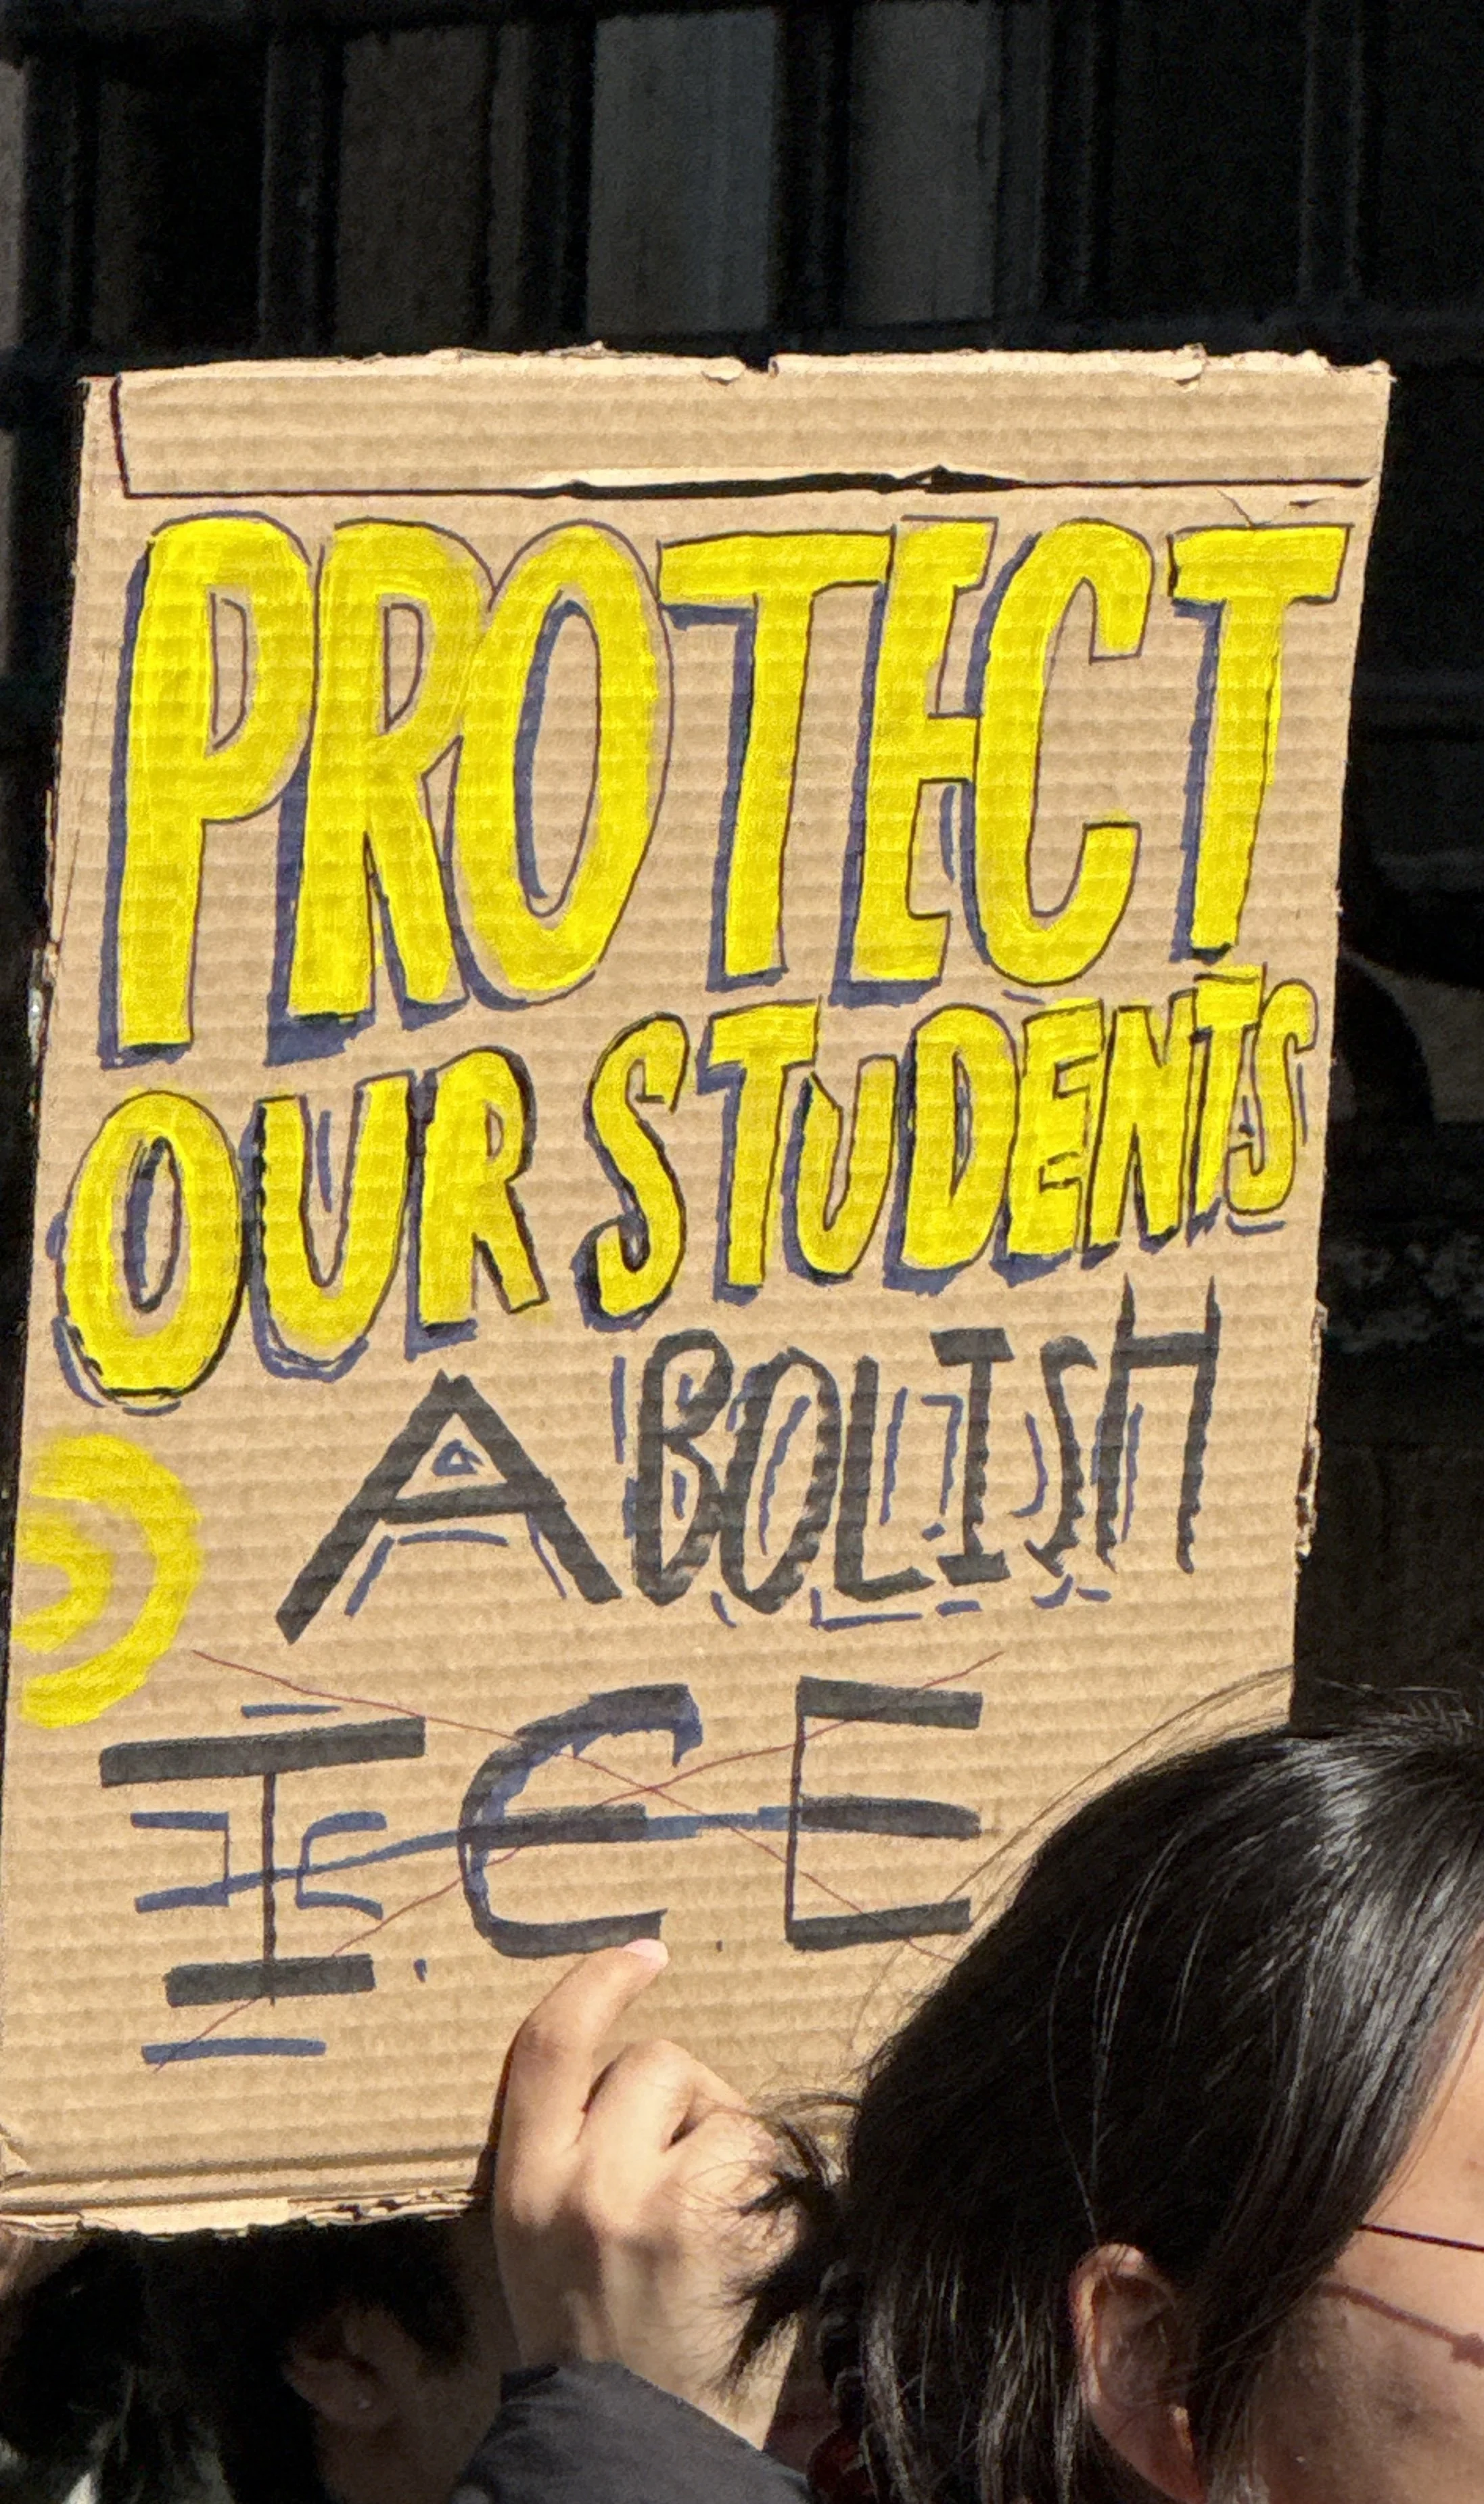 PROTECT
OUR STUDENTS
ABOLISH
ICE